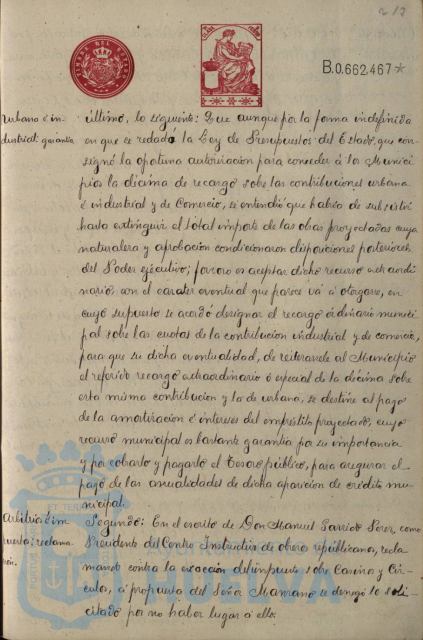 212
TIMBRE DEL ESTADO
B.0.662.467*
Urbana é in-
dustrial: garantía
último, lo siguiente: Que aunque por la forma indefinida
en que se redactó la Ley de Presupuestos del Estado, que con-
signó la oportuna autorización para conceder á los Munici-
pios la décima de recargo sobre las contribuciones urbana
é industrial y de Comercio, se entendió que había de subsistir
hasta extinguir el total importe de las obras proyectadas cuya
naturaleza y aprobación condicionaron disposiciones posteriores
del Poder ejecutivo; forzoso es aceptar dicho recurso extraordi-
nario, con el caracter eventual que parece vá á otorgarse, en
cuyo supuesto se acordó designar el recargo ordinario munici-
pal sobre las cuotas de la contribución industrial y de comercio,
para que su dicha eventualidad, de reiterarsele al Municipio
el referido recargo extraordinario ó especial de la décima sobre
esta misma contribución y la de urbana, se destine al pago
de la amortización é intereses del empréstito proyectado, cuyo
recurso municipal es bastante garantía por su importancia
y por cobrarlo y pagarlo el Tesoro público, para asegurar el
pago de las anualidades de dicha operación de crédito mu-
nicipal.
Arbitrio é im-
puesto; reclama-
ción.
Segundo: En el escrito de Don Manuel Garrido Perez, como
Presidente del Centro Instructivo de obreros republicanos, recla-
mando contra la exacción del impuesto sobre Casinos y Cír-
culos, á propuesta del Señor Manzano se denegó lo soli-
citado por no haber lugar á ello.